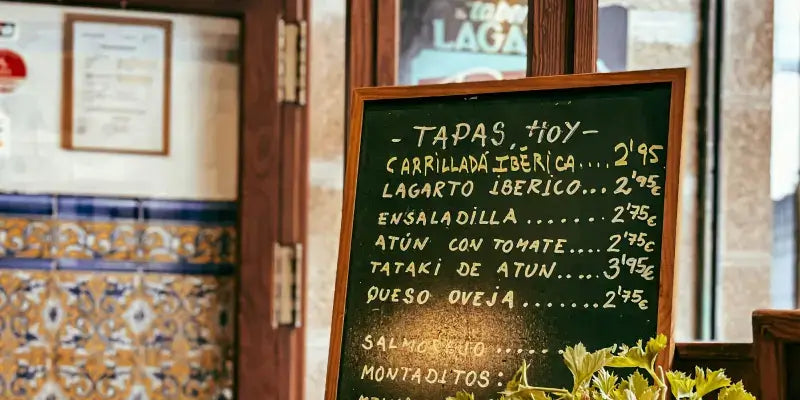 LAGA
- TAPAS, HOY -
CARRILLADA IBÉRICA.... 2'95
LAGARTO IBERICO... 2'95€
ENSALADILLA ....... 2'75€
ATÚN CON TOMATE.... 2'75€
TATAKI DE ATUN..... 3'95€
QUESO OVEJA ....... 2'75€
SALMOREJO ......
MONTADITOS: